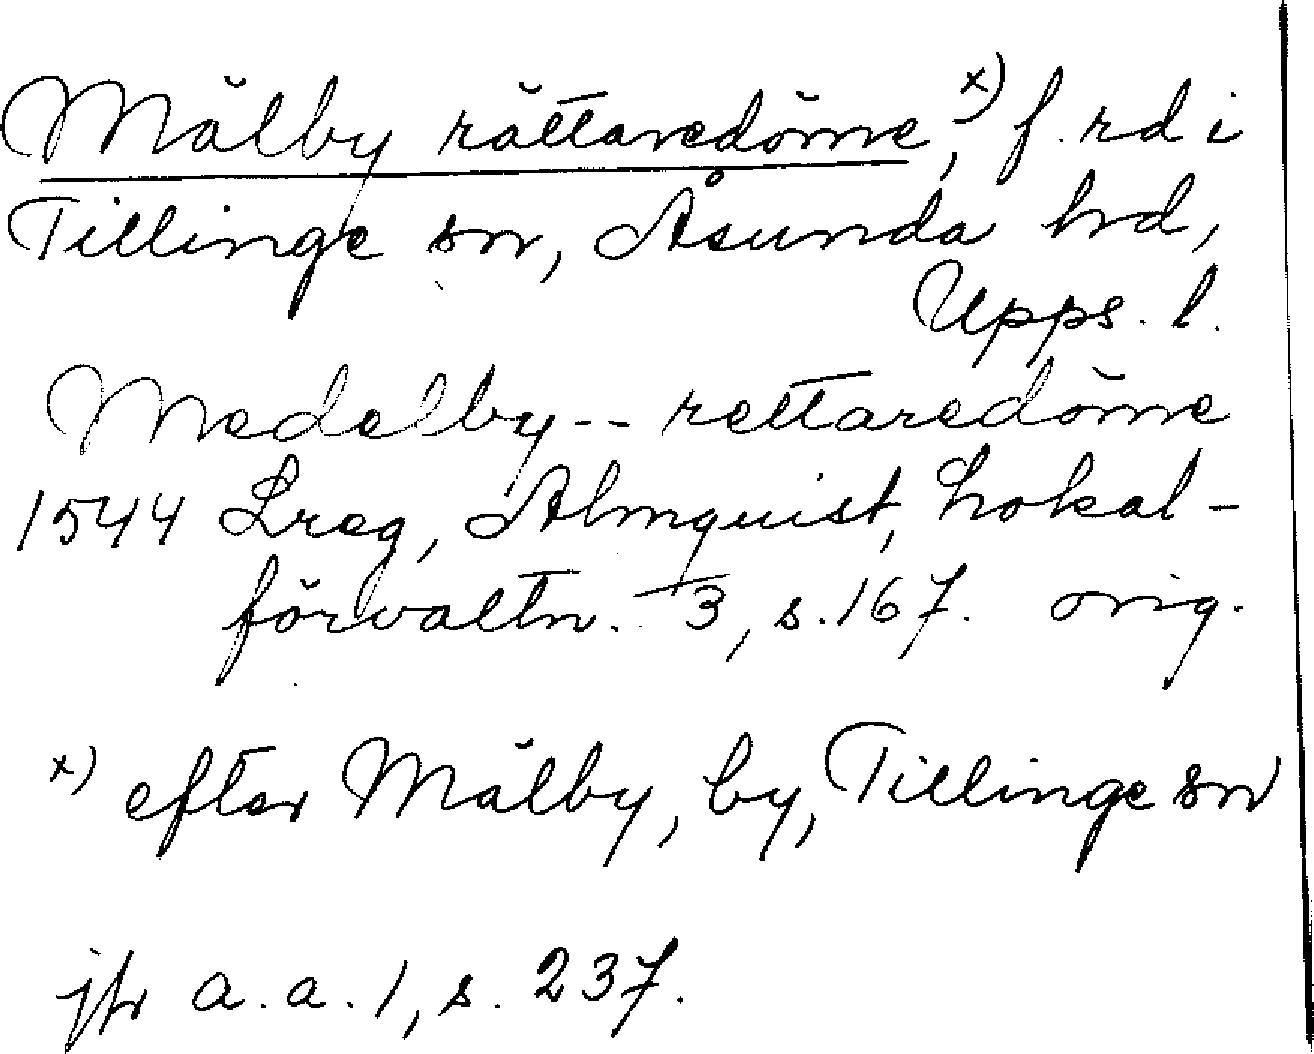 Mälby rättaredöme,x) f. rd i
Tillinge sn, Åsunda hd,
Upps. l.
Medelby -- rettaredöme
1544 Lreg, Almquist, Lokal-
förvaltn. 3, s. 167. orig.
x) efter Mälby, by, Tillinge sn
jfr a. a. 1, s. 237.